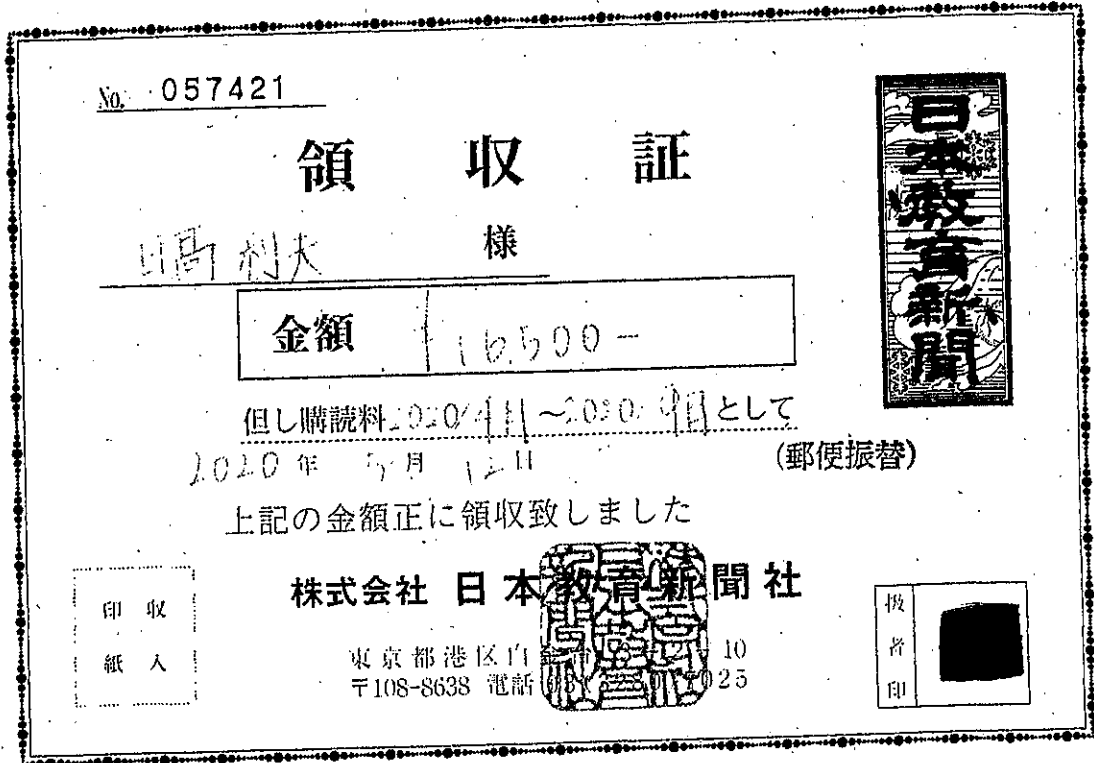 No. 057421
領収証
日高 利夫 様
金額 ¥16,500-
但し購読料 2020/4月～2020/9月として
2020年 5月 12日
(郵便振替)
上記の金額正に領収致しました
株式会社 日本教育新聞社
東京都港区白金台 10
〒108-8638 電話 025
収入印紙
扱者印
日本教育新聞